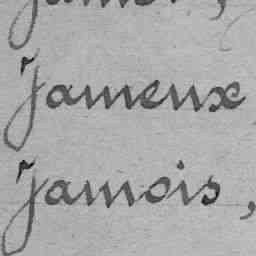 Jameux
Jamois,